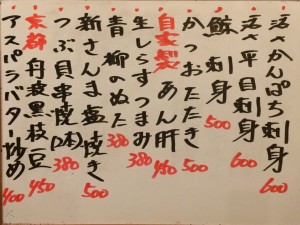 活〆かんぱち刺身 600
活〆平目刺身 600
鯨刺身 500
かつおたたき 500
自家製 あん肝 450
生しらすつまみ 380
青柳のぬた 380
新さんま塩焼き 500
つぶ貝串焼(1本) 380
京都 丹波黒枝豆 450
アスパラバター炒め 400